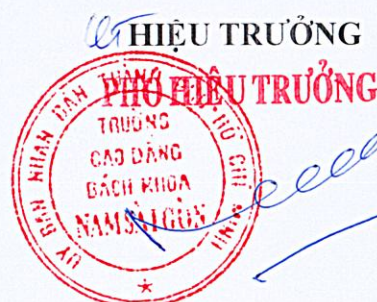 KT HIỆU TRƯỞNG
PHÓ HIỆU TRƯỞNG
ỦY BAN NHÂN DÂN THÀNH PHỐ HỒ CHÍ MINH
TRƯỜNG
CAO ĐẲNG
BÁCH KHOA
NAM SÀI GÒN